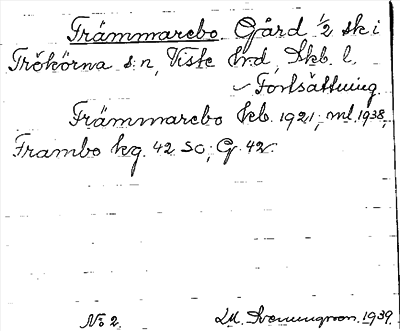 Främmarebo. Gård 1/2 sk i
Trökörna s:n, Viste hrd, Skb. l.
Fortsättning.
Främmarebo kb. 1921; ml. 1938;
Frambo kg. 42 SO; G. 42.
No 2.
1939.